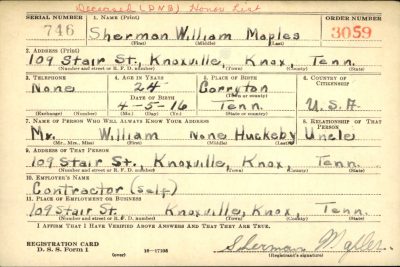 Deceased (DNB) Honor List
SERIAL NUMBER 1. NAME (Print) ORDER NUMBER
746 Sherman William Maples 3059
(First) (Middle) (Last)
2. ADDRESS (Print)
109 Stair St., Knoxville, Knox, Tenn.
(Number and street or R. F. D. number) (Town) (County) (State)
3. TELEPHONE 4. AGE IN YEARS 5. PLACE OF BIRTH 6. COUNTRY OF CITIZENSHIP
None 24 Corryton
DATE OF BIRTH (Town or county)
4-5-16 Tenn. U.S.A
(Exchange) (Number) (Mo.) (Day) (Yr.) (State or country)
7. NAME OF PERSON WHO WILL ALWAYS KNOW YOUR ADDRESS 8. RELATIONSHIP OF THAT PERSON
Mr. William None Huckeby Uncle
(Mr., Mrs., Miss) (First) (Middle) (Last)
9. ADDRESS OF THAT PERSON
109 Stair St. Knoxville, Knox, Tenn.
(Number and street or R. F. D. number) (Town) (County) (State)
10. EMPLOYER'S NAME
Contractor (self)
11. PLACE OF EMPLOYMENT OR BUSINESS
109 Stair St. Knoxville, Knox, Tenn.
(Number and street or R. F. D. number) (Town) (County) (State)
I AFFIRM THAT I HAVE VERIFIED ABOVE ANSWERS AND THAT THEY ARE TRUE.
REGISTRATION CARD
D. S. S. Form 1 (over) 16-17105 Sherman Maples
(Registrant's signature)